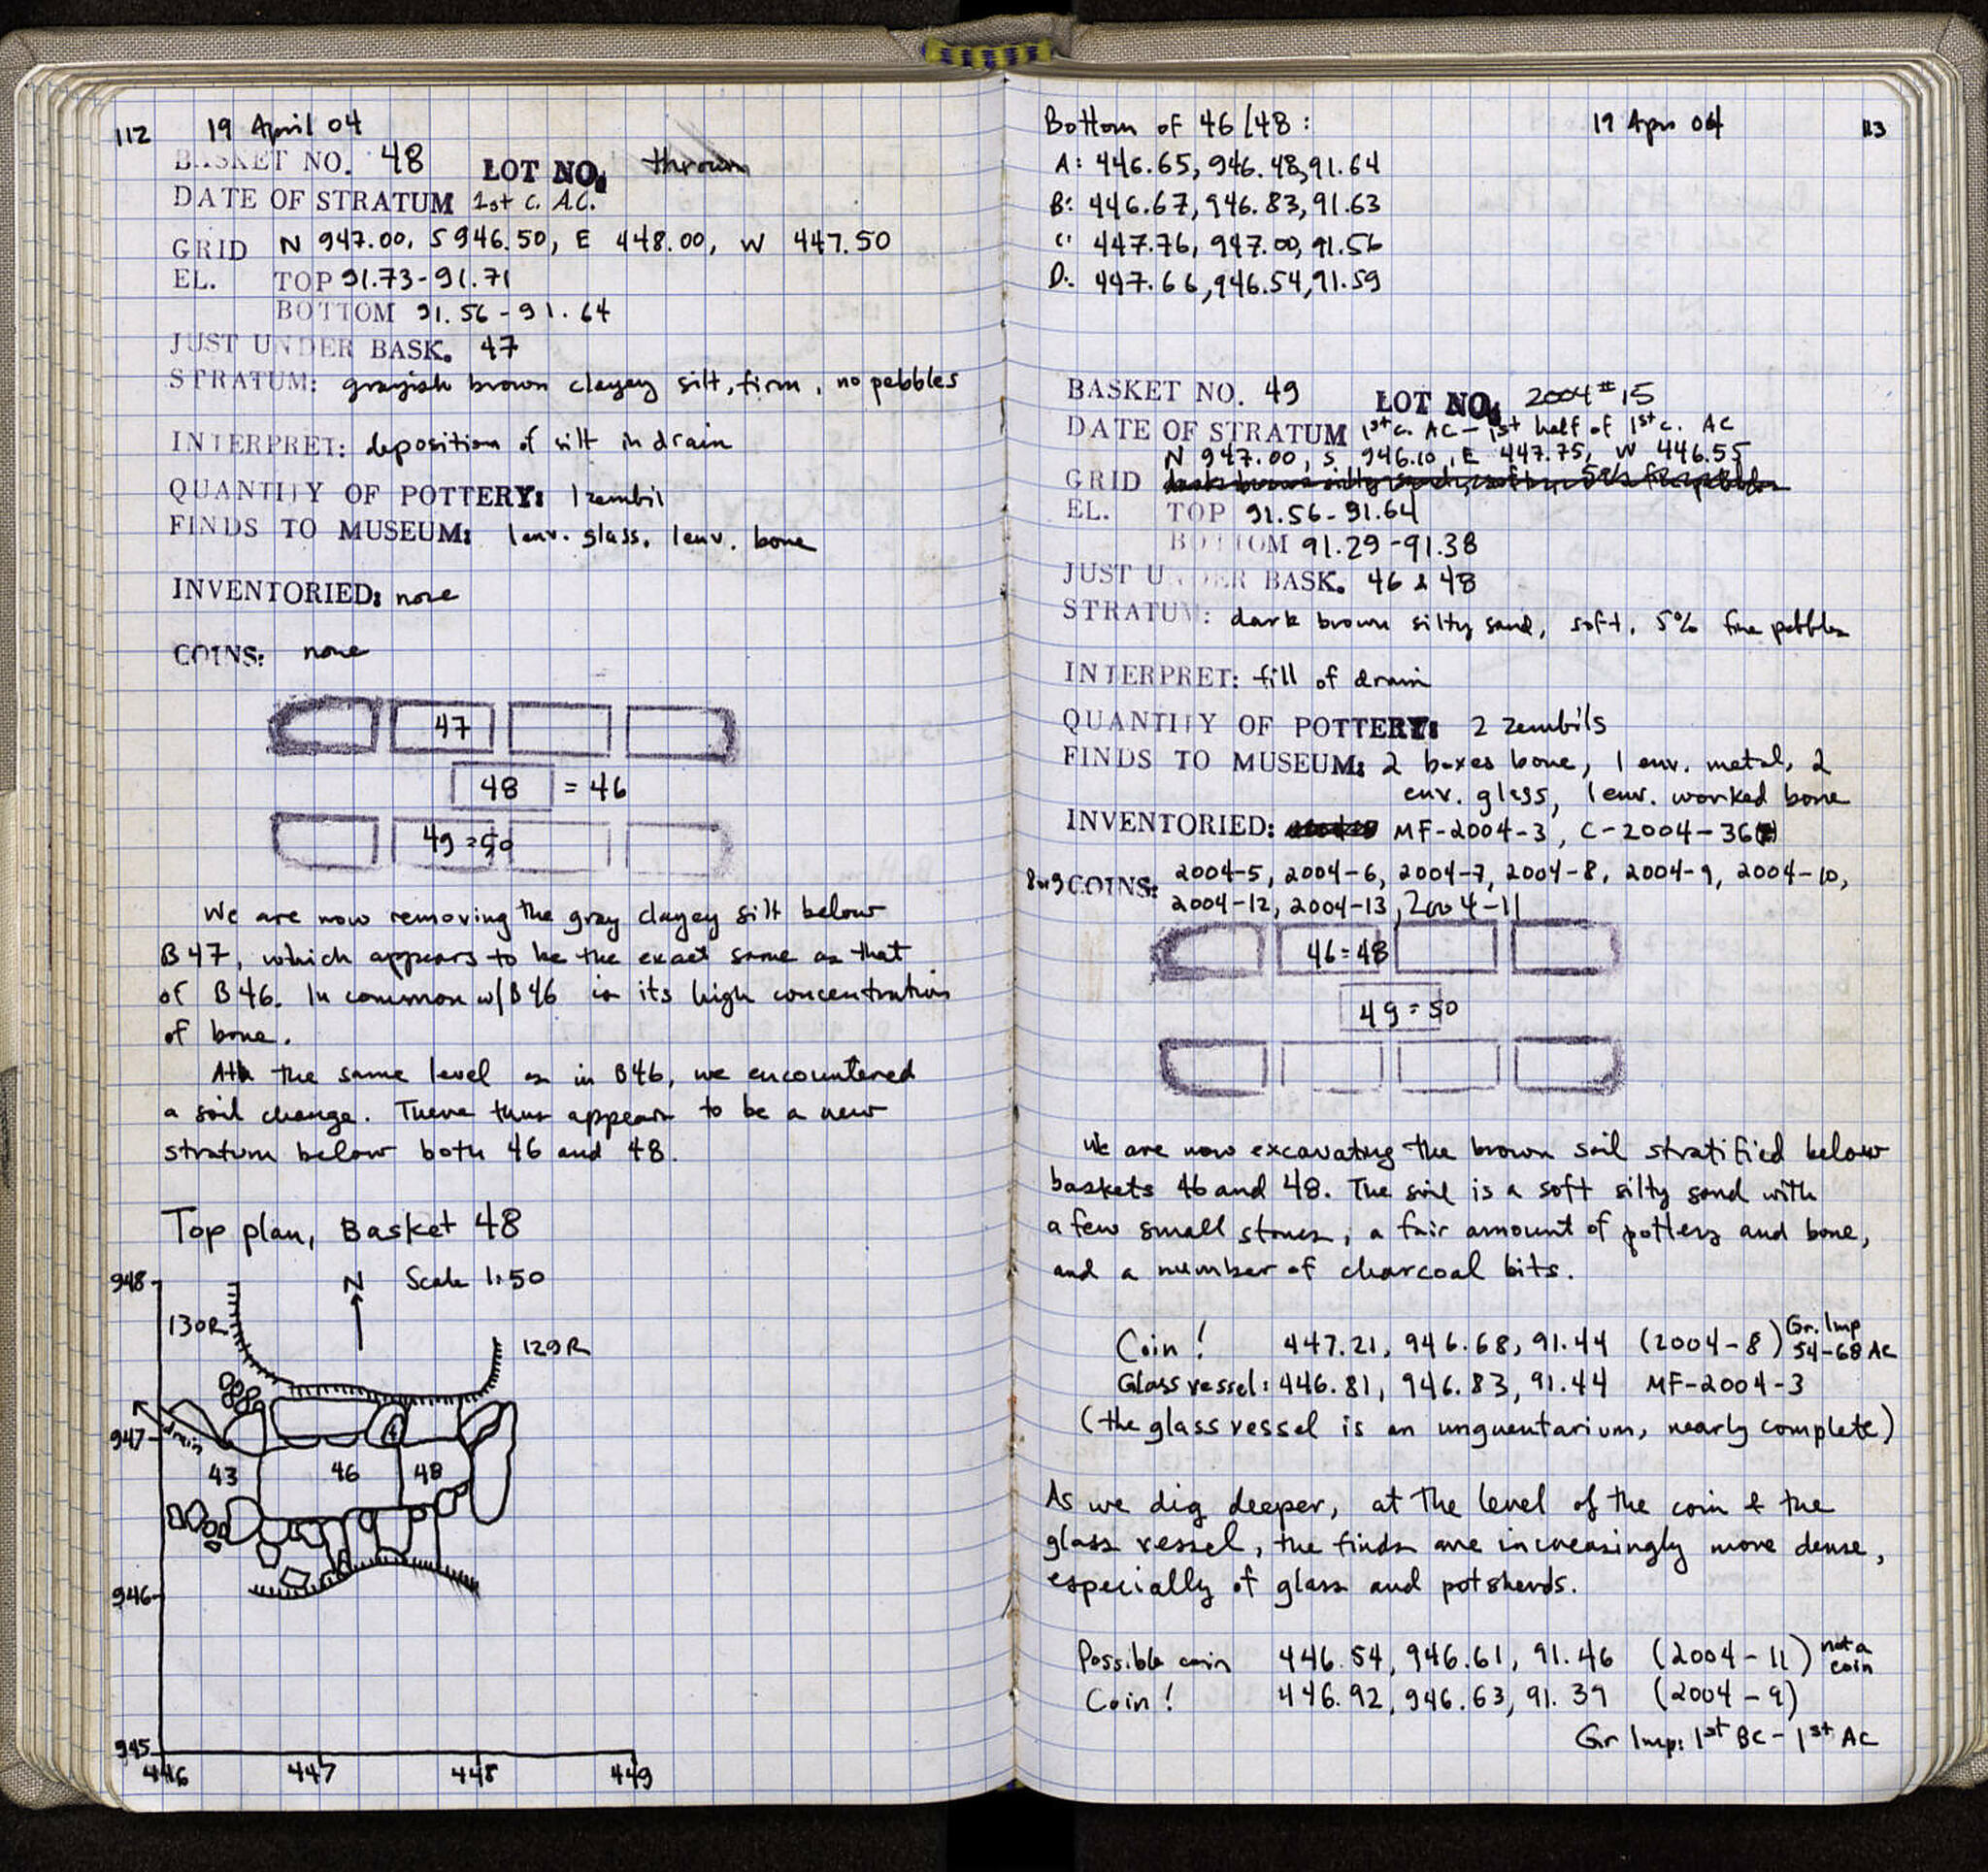 112 19 April 04
BASKET NO. 48 LOT NO. thrown
DATE OF STRATUM 1st c. A.C.
GRID N 947.00, S 946.50, E 448.00, W 447.50
EL. TOP 91.73-91.71
BOTTOM 91.56-91.64
JUST UNDER BASK. 47
STRATUM: grayish brown clayey silt, firm, no pebbles
INTERPRET: deposition of silt in drain
QUANTITY OF POTTERY: 1 zembil
FINDS TO MUSEUM: 1 env. glass, 1 env. bone
INVENTORIED: none
COINS: none
47
48 = 46
49 = 50
We are now removing the gray clayey silt below
B47, which appears to be the exact same as that
of B46. In common w/B46 is its high concentration
of bone.
At the same level as in B46, we encountered
a soil change. There thus appears to be a new
stratum below both 46 and 48.
Top plan, Basket 48
N Scale 1:50
948
130R
129R
947
drain
43 46 48
946
945
446 447 448 449
Bottom of 46/48: 19 Apr 04 113
A: 446.65, 946.48, 91.64
B: 446.67, 946.83, 91.63
C: 447.76, 947.00, 91.56
D: 447.66, 946.54, 91.59
BASKET NO. 49 LOT NO. 2004#15
DATE OF STRATUM 1st c. AC - 1st half of 1st c. AC
N 947.00, S 946.10, E 447.75, W 446.55
GRID
EL. TOP 91.56-91.64
BOTTOM 91.29-91.38
JUST UNDER BASK. 46 & 48
STRATUM: dark brown silty sand, soft, 5% fine pebbles
INTERPRET: fill of drain
QUANTITY OF POTTERY: 2 zembils
FINDS TO MUSEUM: 2 boxes bone, 1 env. metal, 2
env. glass, 1 env. worked bone
INVENTORIED: MF-2004-3, C-2004-36
COINS: 2004-5, 2004-6, 2004-7, 2004-8, 2004-9, 2004-10,
2004-12, 2004-13, 2004-11
46=48
49=50
We are now excavating the brown soil stratified below
baskets 46 and 48. The soil is a soft silty sand with
a few small stones, a fair amount of pottery and bone,
and a number of charcoal bits.
Coin! 447.21, 946.68, 91.44 (2004-8) Gr. Imp 54-68 AC
Glass vessel: 446.81, 946.83, 91.44 MF-2004-3
(the glass vessel is an unguentarium, nearly complete)
As we dig deeper, at the level of the coin & the
glass vessel, the finds are increasingly more dense,
especially of glass and potsherds.
Possible coin 446.54, 946.61, 91.46 (2004-11) not a coin
Coin! 446.92, 946.63, 91.39 (2004-9)
Gr Imp: 1st BC - 1st AC